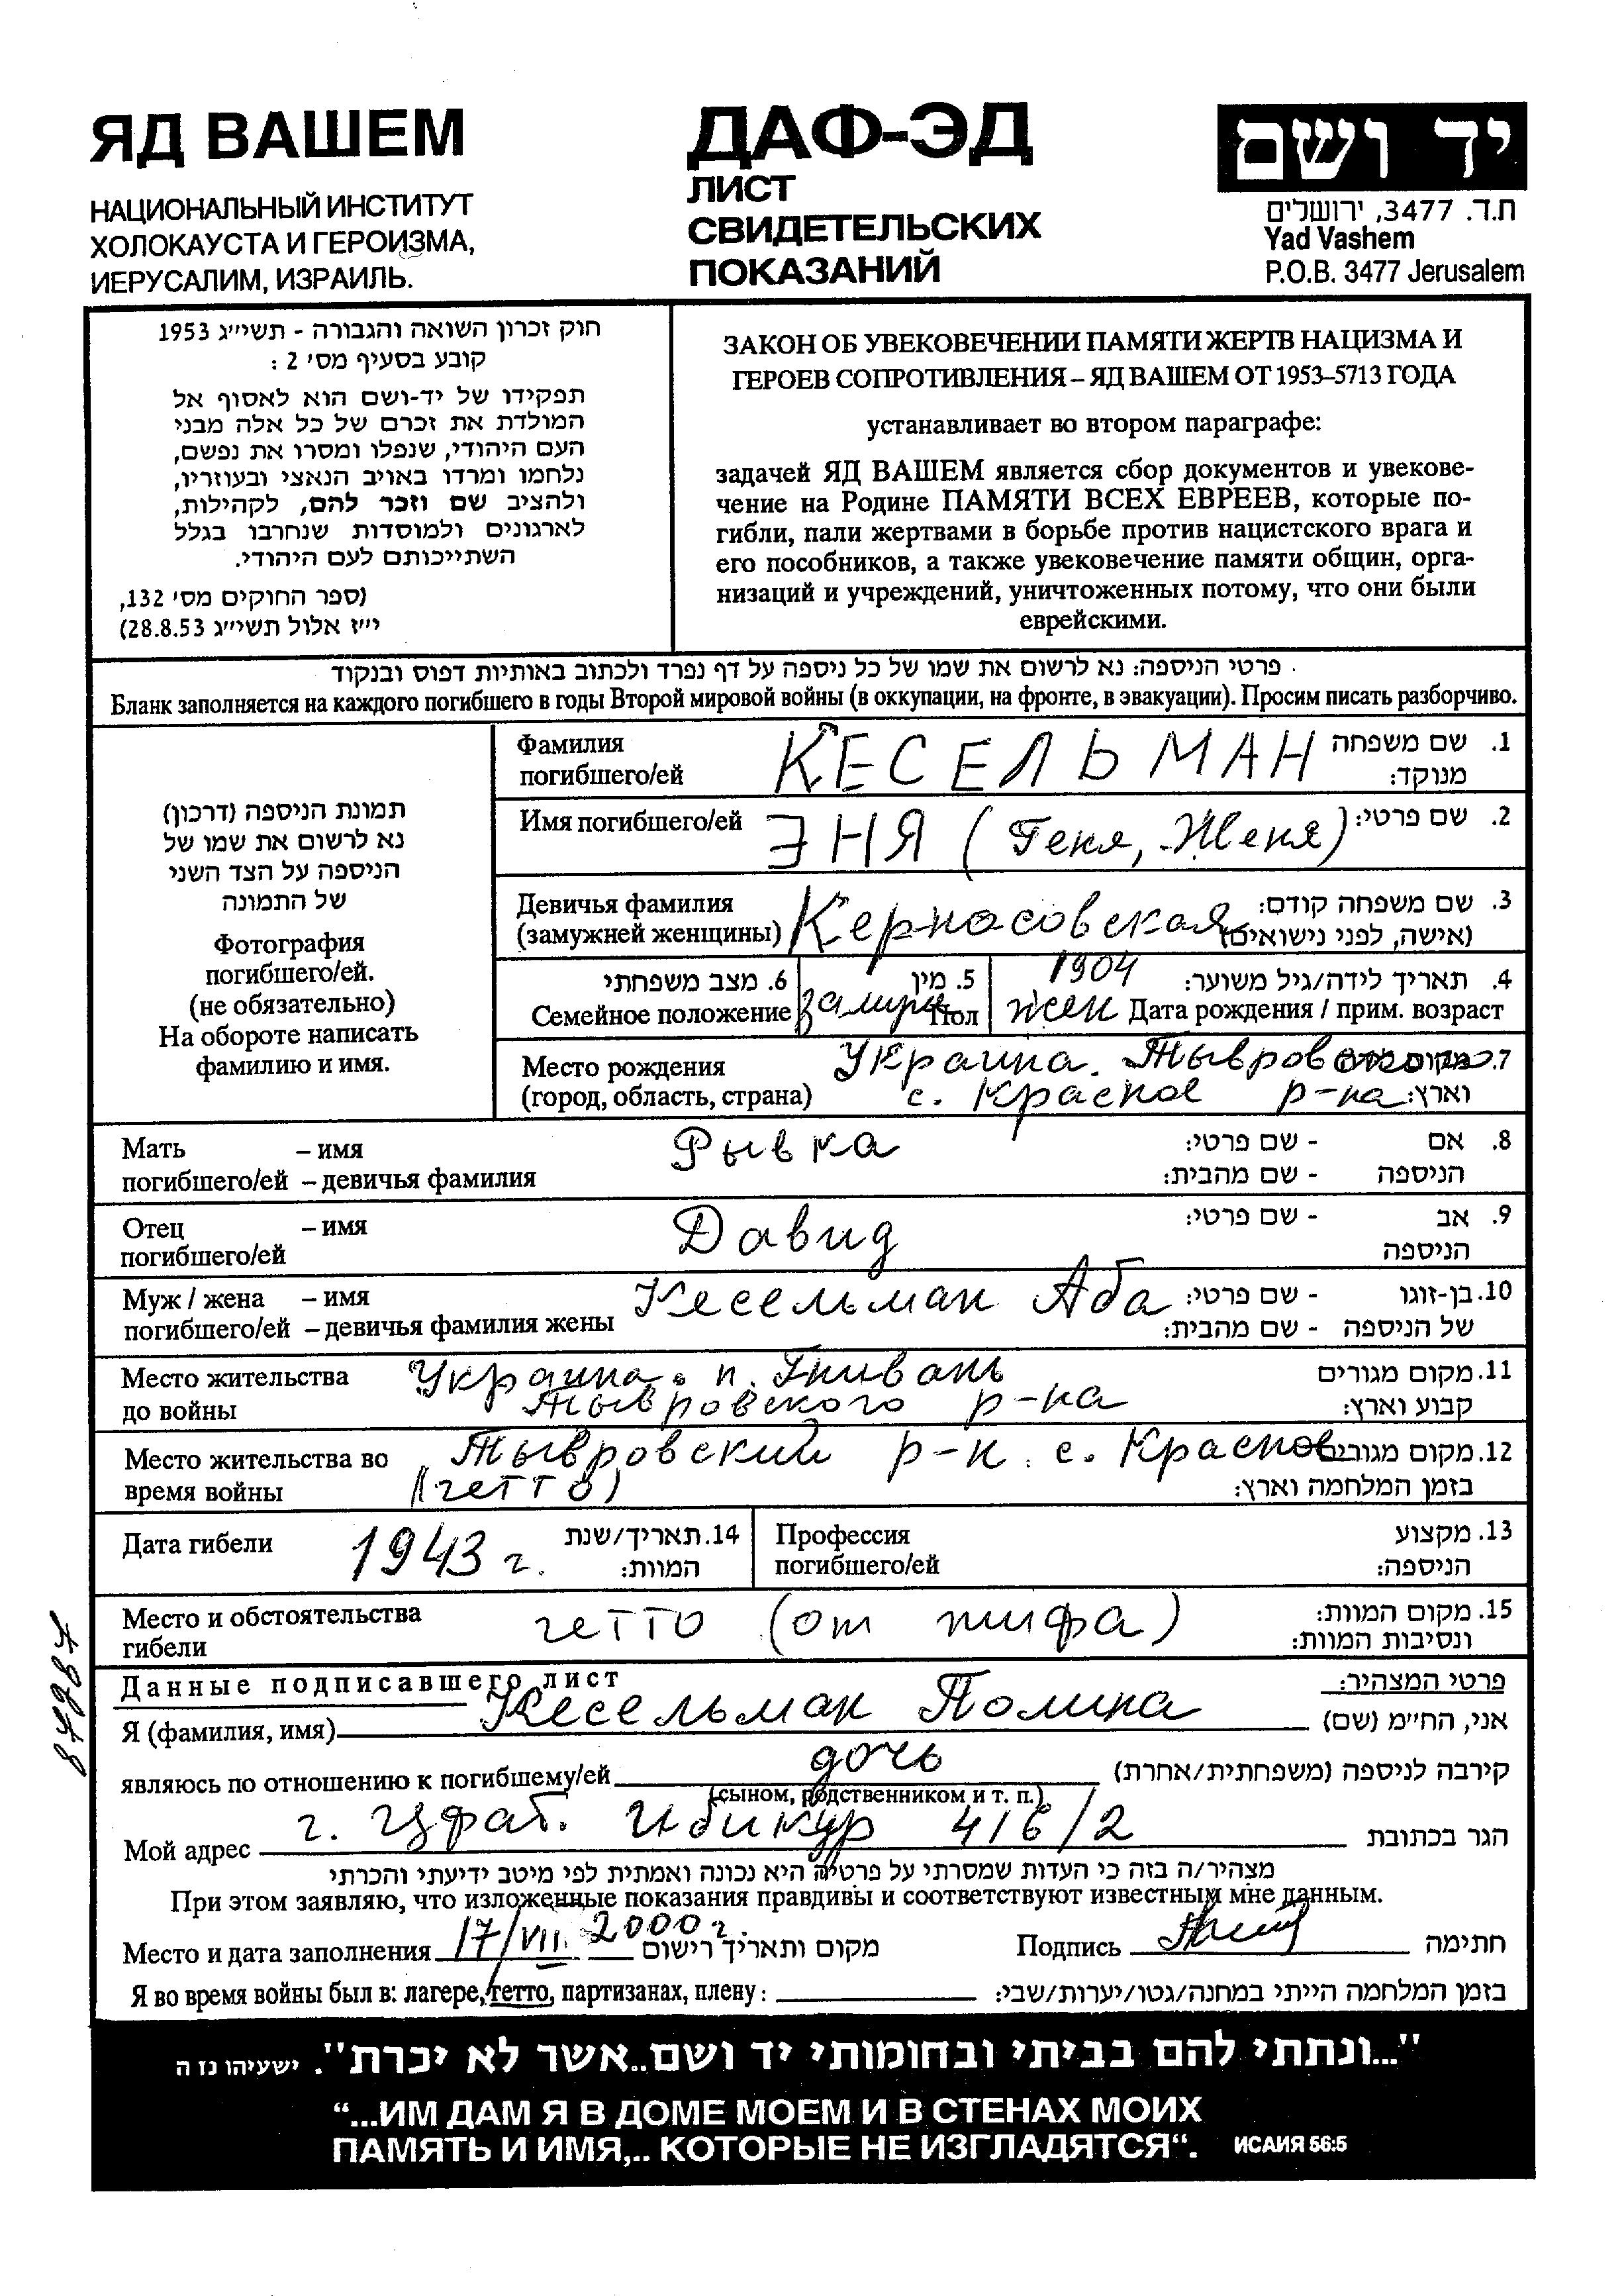 ЯД ВАШЕМ
НАЦИОНАЛЬНЫЙ ИНСТИТУТ
ХОЛОКАУСТА И ГЕРОИЗМА,
ИЕРУСАЛИМ, ИЗРАИЛЬ.
ДАФ-ЭД
ЛИСТ
СВИДЕТЕЛЬСКИХ
ПОКАЗАНИЙ
יד ושם
ת.ד. 3477, ירושלים
Yad Vashem
P.O.B. 3477 Jerusalem
חוק זכרון השואה והגבורה - תשי״ג 1953
קובע בסעיף מס׳ 2 :
תפקידו של יד-ושם הוא לאסוף אל
המולדת את זכרם של כל אלה מבני
העם היהודי, שנפלו ומסרו את נפשם,
נלחמו ומרדו באויב הנאצי ובעוזריו,
ולהציב שם וזכר להם, לקהילות,
לארגונים ולמוסדות שנחרבו בגלל
השתייכותם לעם היהודי.
(ספר החוקים מס׳ 132,
י״ז אלול תשי״ג 28.8.53)
ЗАКОН ОБ УВЕКОВЕЧЕНИИ ПАМЯТИ ЖЕРТВ НАЦИЗМА И
ГЕРОЕВ СОПРОТИВЛЕНИЯ – ЯД ВАШЕМ ОТ 1953–5713 ГОДА
устанавливает во втором параграфе:
задачей ЯД ВАШЕМ является сбор документов и увекове-
чение на Родине ПАМЯТИ ВСЕХ ЕВРЕЕВ, которые по-
гибли, пали жертвами в борьбе против нацистского врага и
его пособников, а также увековечение памяти общин, орга-
низаций и учреждений, уничтоженных потому, что они были
еврейскими.
פרטי הניספה: נא לרשום את שמו של כל ניספה על דף נפרד ולכתוב באותיות דפוס ובנקוד
Бланк заполняется на каждого погибшего в годы Второй мировой войны (в оккупации, на фронте, в эвакуации). Просим писать разборчиво.
תמונת הניספה (דרכון)
נא לרשום את שמו של
הניספה על הצד השני
של התמונה
Фотография
погибшего/ей.
(не обязательно)
На обороте написать
фамилию и имя.
Фамилия КЕСЕЛЬМАН 1. שם משפחה
погибшего/ей מנוקד:
Имя погибшего/ей ЭНЯ (Геня, Женя) 2. שם פרטי:
Девичья фамилия Керносовская 3. שם משפחה קודם:
(замужней женщины) (אישה, לפני נישואים)
6. מצב משפחתי 5. מין 1904 4. תאריך לידה/גיל משוער:
Семейное положение замужн Пол жен Дата рождения / прим. возраст
Место рождения Украина. Тывровского 7. מקום לידה
(город, область, страна) с. Красное р-на וארץ:
Мать – имя Рывка - שם פרטי: אם 8.
погибшего/ей – девичья фамилия - שם מהבית: הניספה
Отец – имя Давид - שם פרטי: אב 9.
погибшего/ей הניספה
Муж / жена – имя Кесельман Аба - שם פרטי: 10. בן-זוגו
погибшего/ей – девичья фамилия жены - שם מהבית: של הניספה
Место жительства Украина. п. Гнивань 11. מקום מגורים
до войны Тывровского р-на קבוע וארץ:
Место жительства во Тывровский р-н. с. Красное 12. מקום מגורים
время войны (гетто) בזמן המלחמה וארץ:
Дата гибели 1943 г. 14. תאריך/שנת
המוות:
Профессия 13. מקצוע
погибшего/ей הניספה:
Место и обстоятельства гетто (от тифа) 15. מקום המוות:
гибели ונסיבות המוות:
Данные подписавшего лист פרטי המצהיר:
Я (фамилия, имя) Кесельман Полина אני, החי״מ (שם)
являюсь по отношению к погибшему/ей дочь קירבה לניספה (משפחתית/אחרת)
(сыном, родственником и т. п.)
Мой адрес г. Цфат. Ибикур 416/2 הגר בכתובת
מצהיר/ה בזה כי העדות שמסרתי על פרטיה היא נכונה ואמתית לפי מיטב ידיעתי והכרתי
При этом заявляю, что изложенные показания правдивы и соответствуют известным мне данным.
Место и дата заполнения 17/VII. 2000 г. מקום ותאריך רישום Подпись חתימה
Я во время войны был в: лагере, гетто, партизанах, плену: בזמן המלחמה הייתי במחנה/גטו/יערות/שבי:
"...ונתתי להם בביתי ובחומותי יד ושם..אשר לא יכרת". ישעיהו נז ה
“...ИМ ДАМ Я В ДОМЕ МОЕМ И В СТЕНАХ МОИХ
ПАМЯТЬ И ИМЯ,.. КОТОРЫЕ НЕ ИЗГЛАДЯТСЯ“. ИСАИЯ 56:5